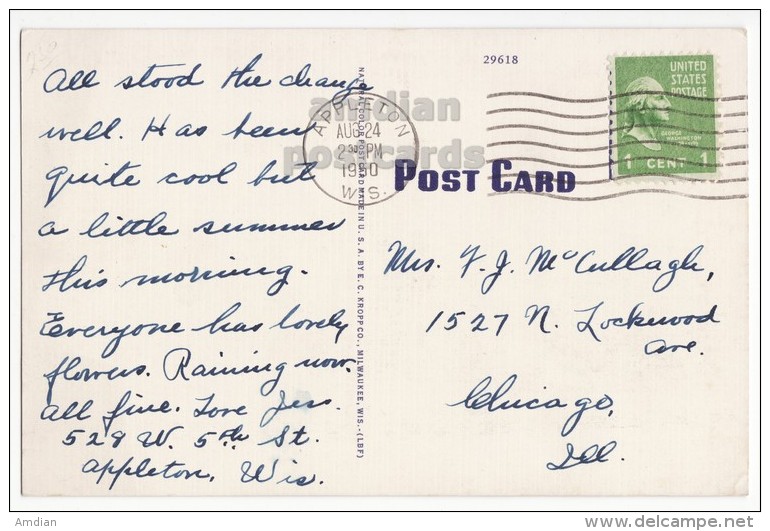 29618
UNITED
STATES
POSTAGE
GEORGE
WASHINGTON
1 CENT 1
APPLETON
AUG 24
PM
1950
WIS.
amdian
postcards
POST CARD
All stood the change
well. Has been
quite cool but
a little summer
this morning.
Everyone has lovely
flowers. Raining now.
All fine. Love Jess.
528 W. 5th St.
Appleton, Wis.
NATURAL COLOR POST CARD MADE IN U. S. A. BY E. C. KROPP CO., MILWAUKEE, WIS.-(LBF)
Mrs. F. J. McCullagh,
1527 N. Lockwood
Ave.
Chicago,
Ill.
Amdian
www.delcampe.net